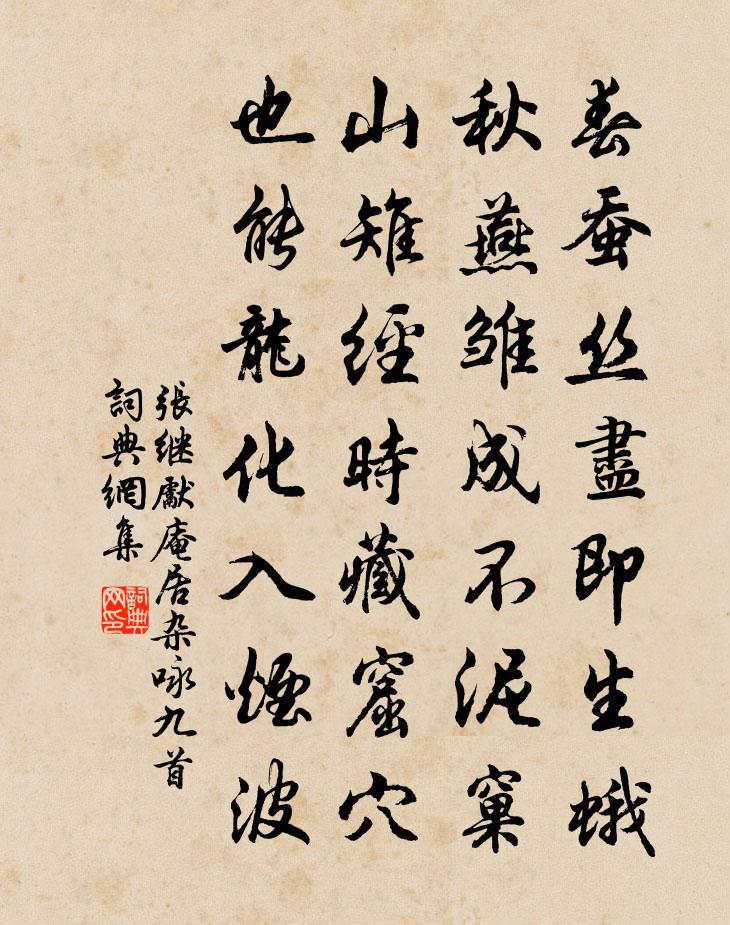 春蚕丝盡即生蛾
秋燕雏成不泥窠
山雉經時藏窟穴
也能龍化入煙波
張继獻庵居杂咏九首
詞典網集
詞典网印